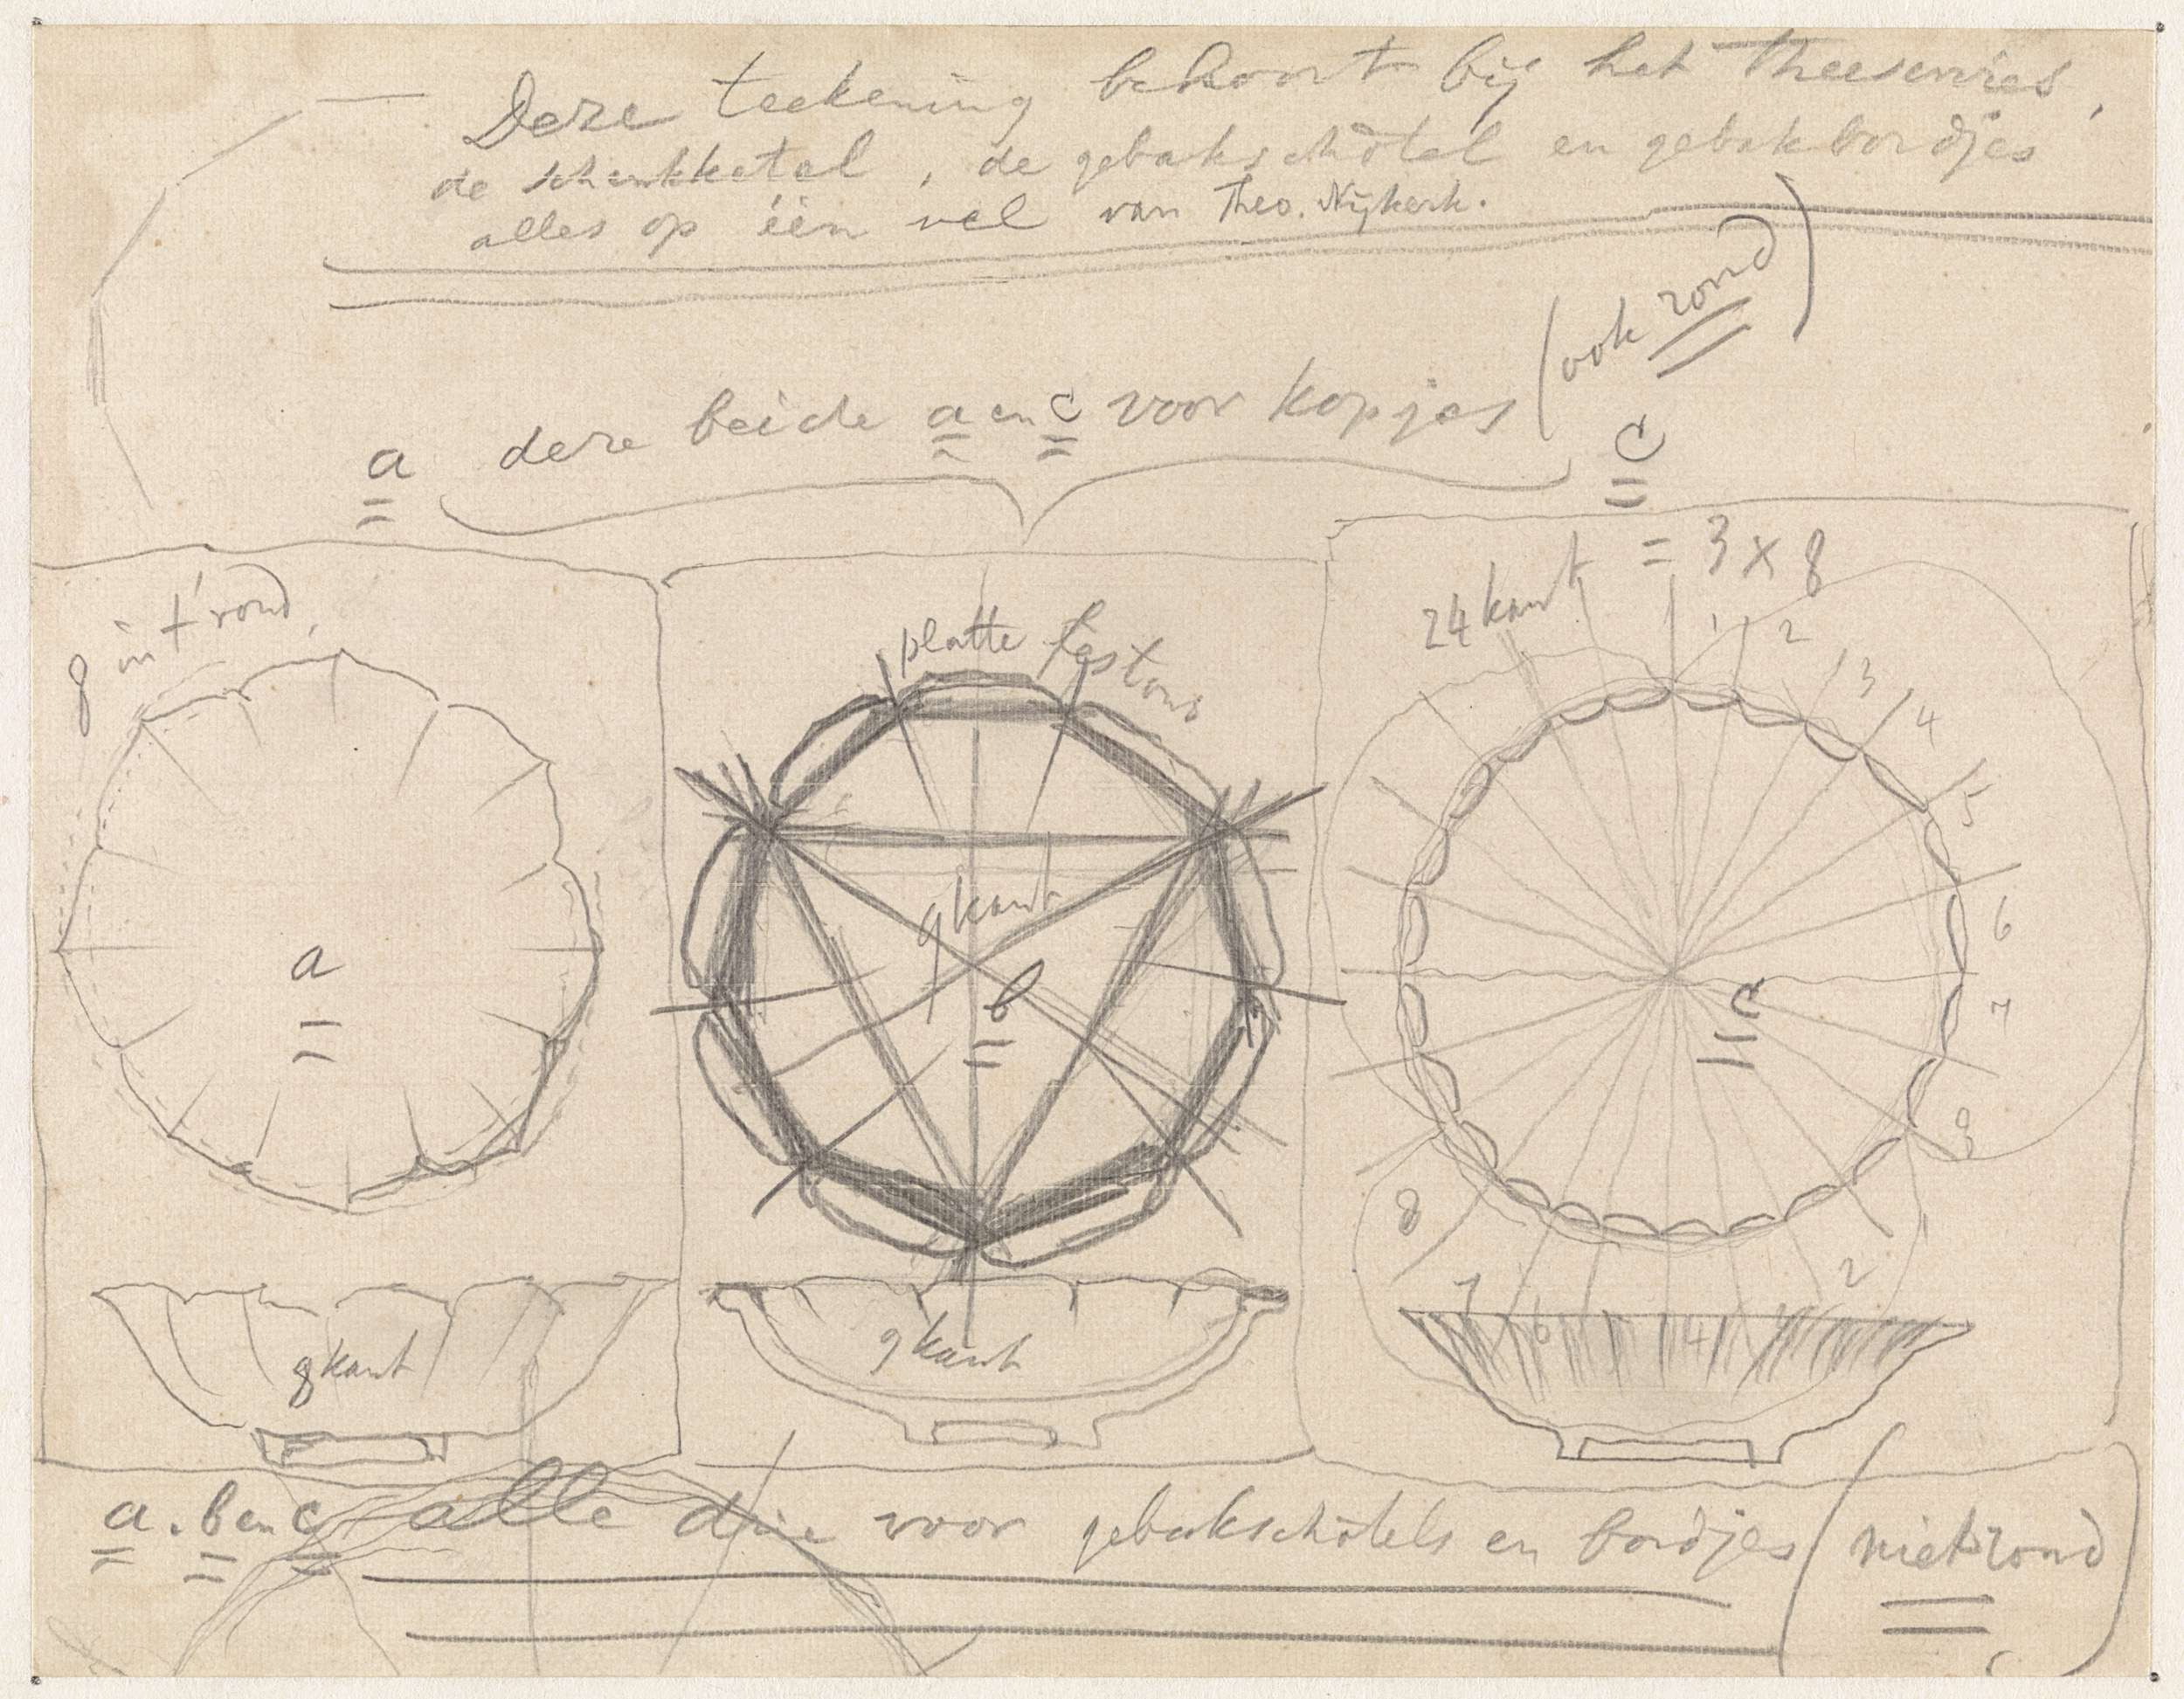 Deze teekening behoort bij het Theeservies,
de schenkketel, de gebakschotel en gebakbordjes
alles op één vel van Theo. Nijkerk.
(ook rond)
a deze beide a en c voor kopjes
c
24 kant = 3 x 8
8 in 't rond,
platte festons
1 2 3 4 5 6 7 8
9 kant
a
b
c
8
1
2
7 6 4
8 kant
9 kant
a. b en c alle drie voor gebakschotels en bordjes (niet rond)